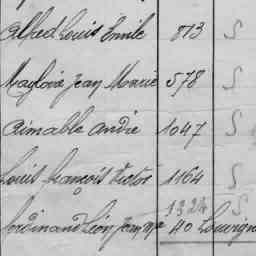 Alfred Louis Emile 813 S
Magloire Jean Marie 578 S
Aimable André 1047 S
Louis François Victor 1164 S
1324 S
Ferdinand Léon Jean Mie 40 Louvign